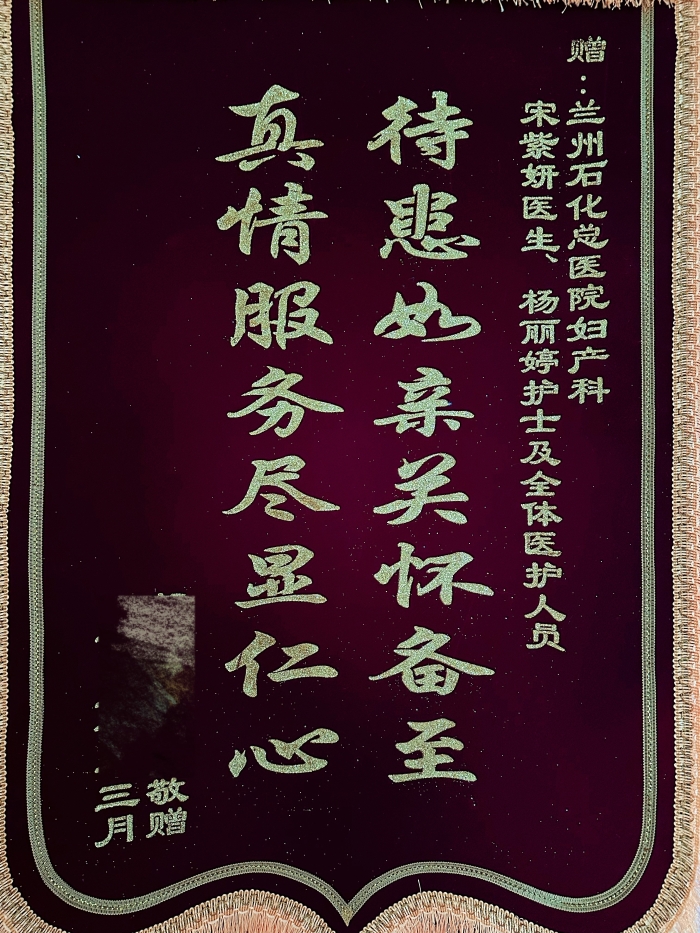 赠：兰州石化总医院妇产科
宋紫妍医生、杨丽婷护士及全体医护人员
待患如亲关怀备至
真情服务尽显仁心
敬赠
三月